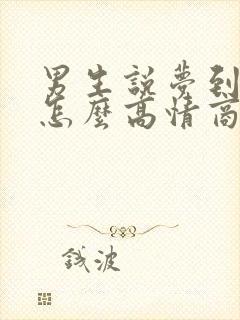 男生說夢到
怎麼高情商
錢波